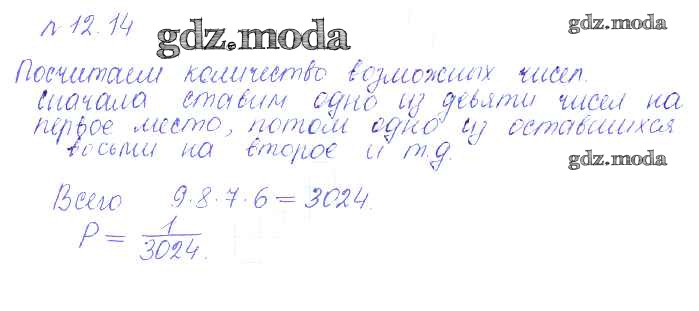 №12.14
gdz.moda
gdz.moda
Посчитаем количество возможных чисел.
Сначала ставим одно из девяти чисел на
первое место, потом одно из оставшихся
восьми на второе и т.д.
gdz.moda
gdz.moda
Всего 9·8·7·6=3024.
P = 1/3024.